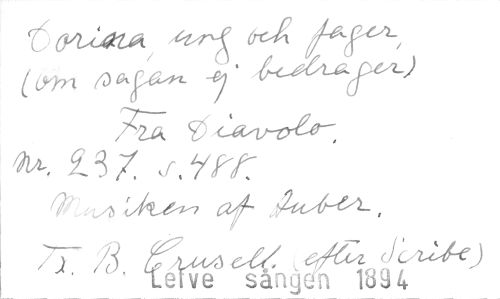 Dorina, ung och fager,
(om sagan ej bedrager)
Fra Diavolo.
Nr. 237. s. 488.
Musiken af Auber.
Tx. B. Crusell. (efter Scribe)
Lefve sången 1894